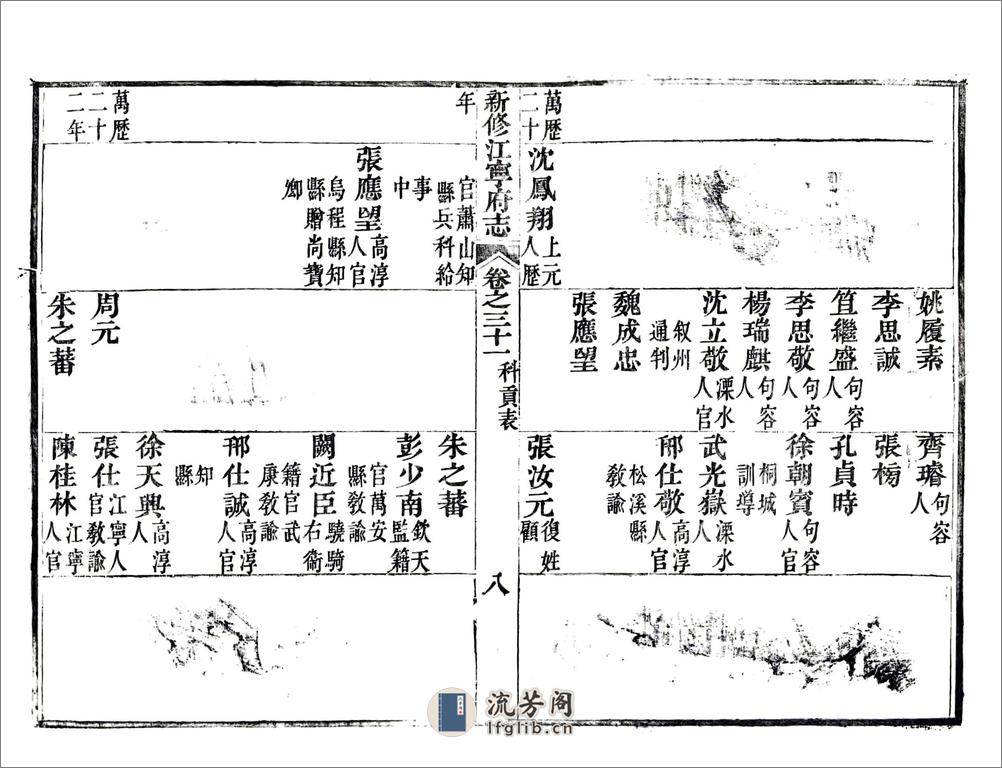 萬歷
二十
沈鳳翔上元
人歷
姚履素
李思誠
笪繼盛句容
人
李思敬句容
人
楊瑞麒句容
人
沈立敬溧水
人官
叙州
通判
魏成忠
張應望
齊璿句容
人
張
孔貞時
徐朝賓句容
人官
桐城
訓導
武光嶽溧水
人
邢仕敬高淳
人官
松溪縣
教諭
張汝元復姓
顧
新修江寧府志
卷之三十一
科貢表
八
年
官蕭山知
縣兵科給
事
中
張應望高淳
人官
烏程縣知
縣贈尚寶
卿
萬歷
二十
二年
周元
朱之蕃
朱之蕃
彭少南欽天
監籍
官萬安
縣教諭
闕近臣驍騎
右衛
籍官武
康教諭
邢仕誠高淳
人官
知
縣
徐天興高淳
人
張仕江寧人
官教諭
陳桂林江寧
人官
流芳阁
lfglib.cn